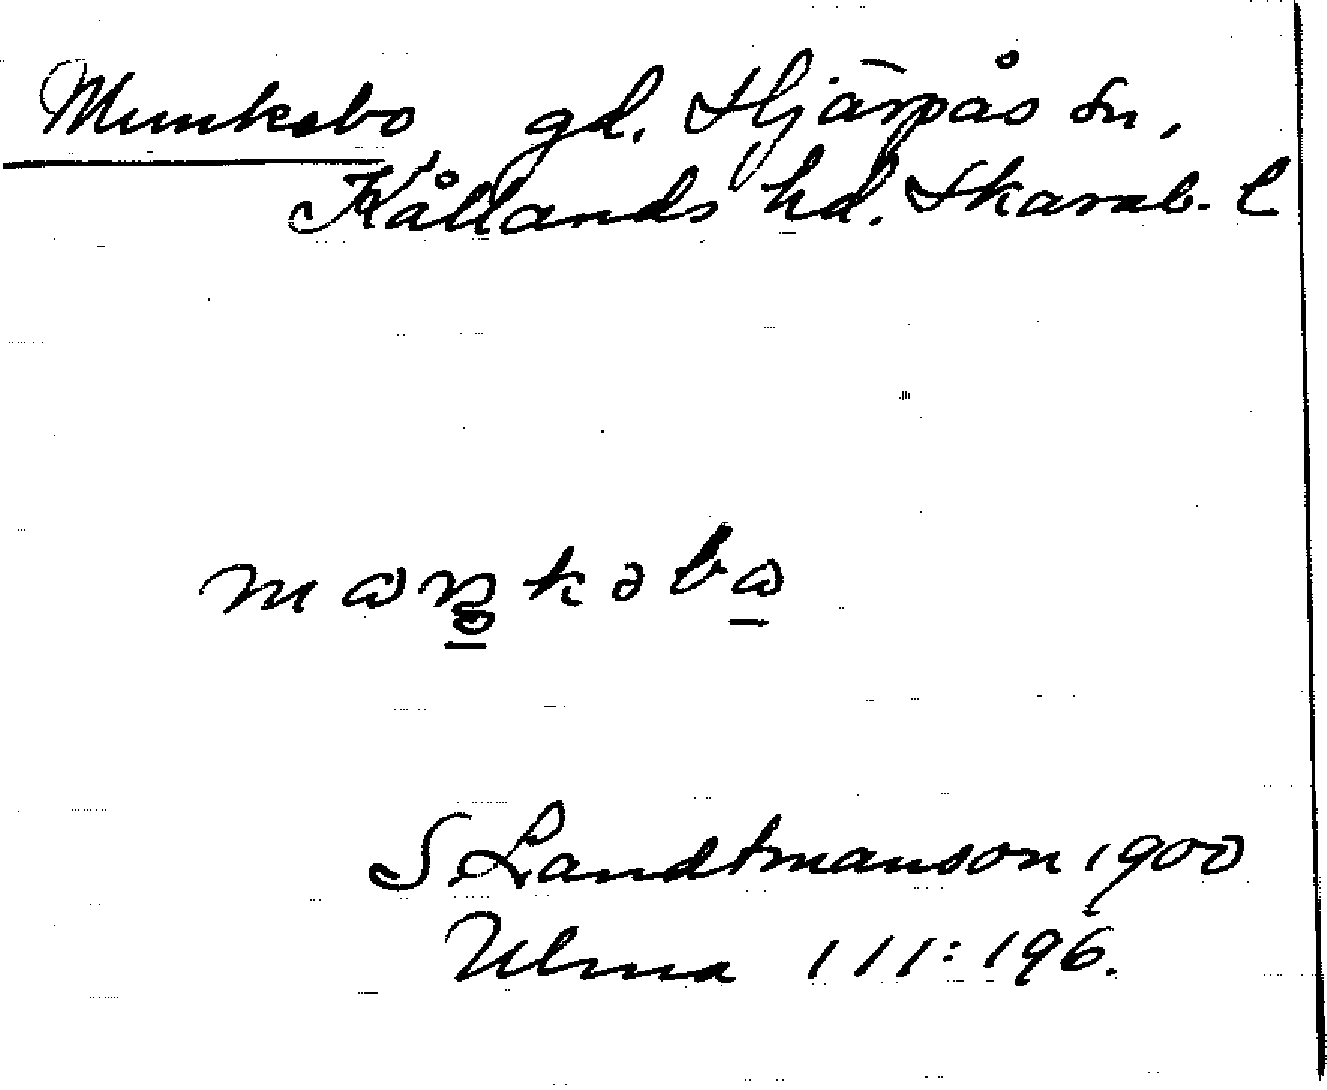 Munkebo gd. Hjärpås sn,
Kållands hd. Skarab. l
S. Landtmanson 1900
Ulma 111:196.